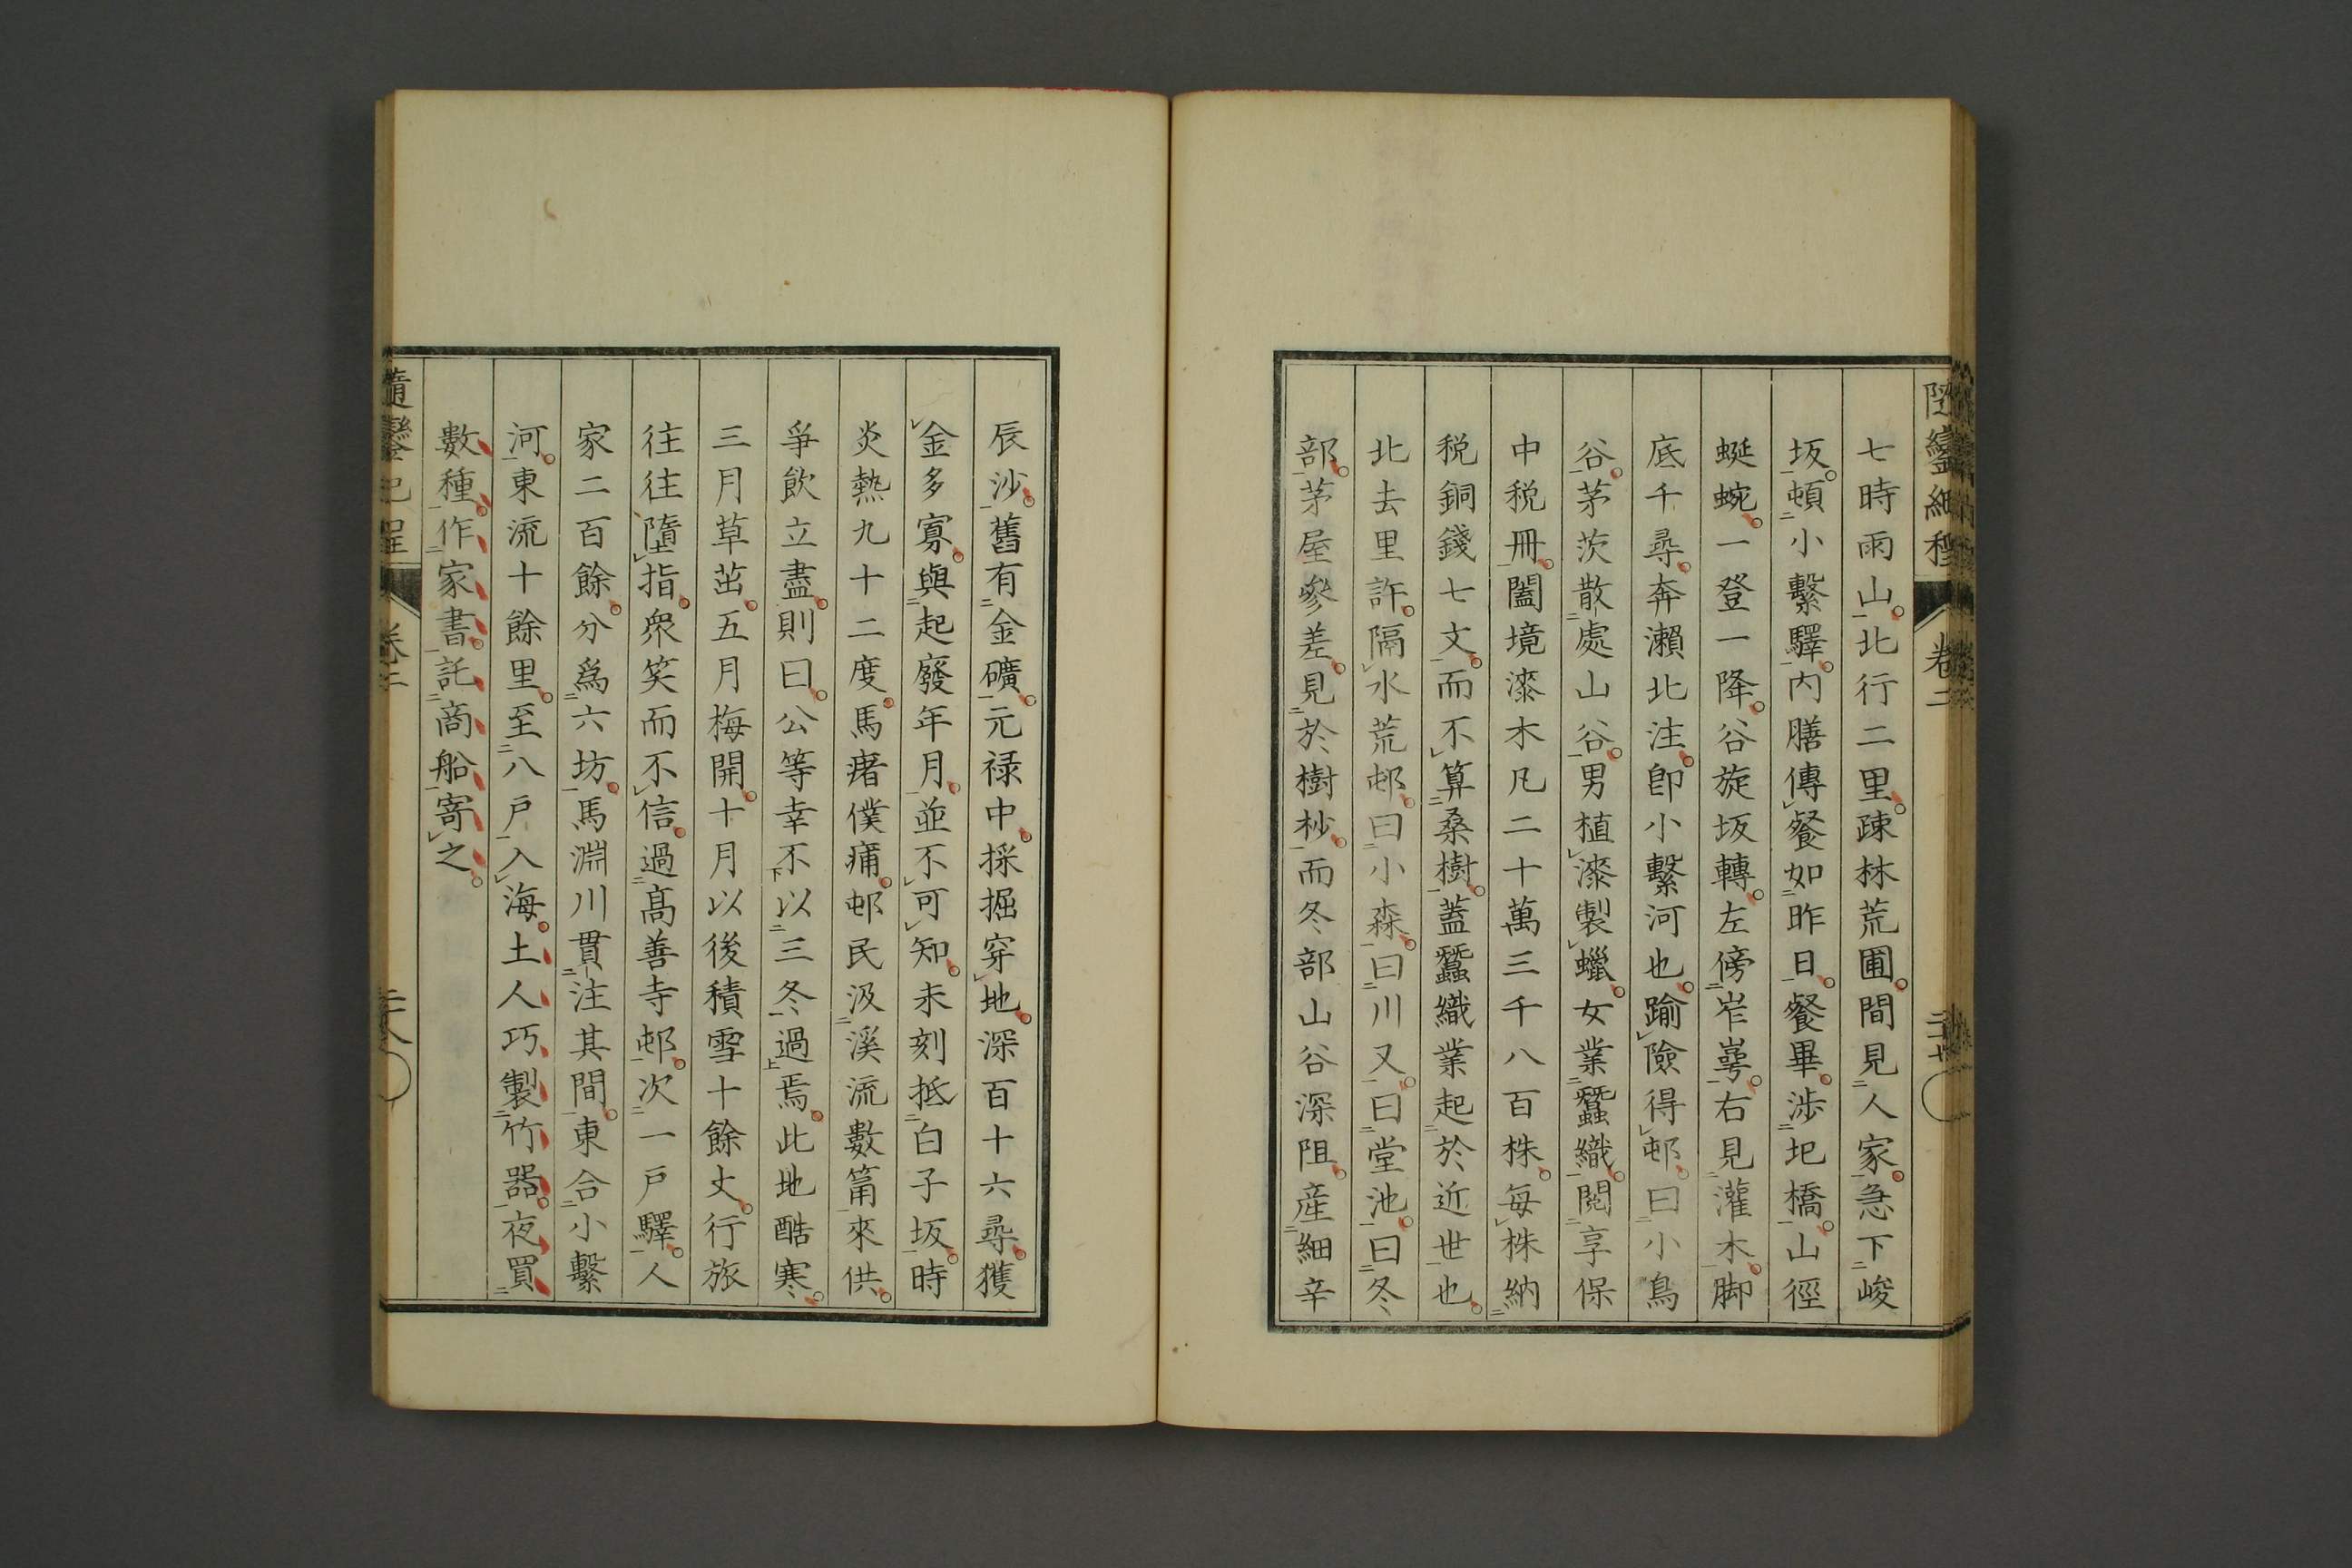 隨鑾紀程 卷二 二十七
七時雨山北行二里疎林荒圃間見人家急下峻
坂頓小繫驛内膳傳餐如昨日餐畢渉圯橋山徑
蜒蜿一登一降谷旋坂轉左傍岝崿右見灌木脚
底千尋奔瀨北注卽小繫河也踰險得邨曰小鳥
谷茅茨散處山谷男植漆製蠟女業蠶織閲享保
中税冊闔境漆木凡二十萬三千八百株每株納
税銅錢七文而不算桑樹蓋蠶織業起於近世也
北去里許隔水荒邨曰小森曰川又曰堂池曰冬
部茅屋參差見於樹杪而冬部山谷深阻産細辛
辰沙舊有金礦元禄中採掘穿地深百十六尋獲
金多寡與起廢年月並不可知未刻抵白子坂時
炎熱九十二度馬瘏僕痡邨民汲溪流數筩來供
爭飲立盡則曰公等幸不以三冬過焉此地酷寒
三月草茁五月梅開十月以後積雪十餘丈行旅
往往墮指衆笑而不信過髙善寺邨次一戸驛人
家二百餘分爲六坊馬淵川貫注其間東合小繫
河東流十餘里至八戸入海土人巧製竹器夜買
數種作家書託商船寄之
隨鑾紀程 卷二 二十八